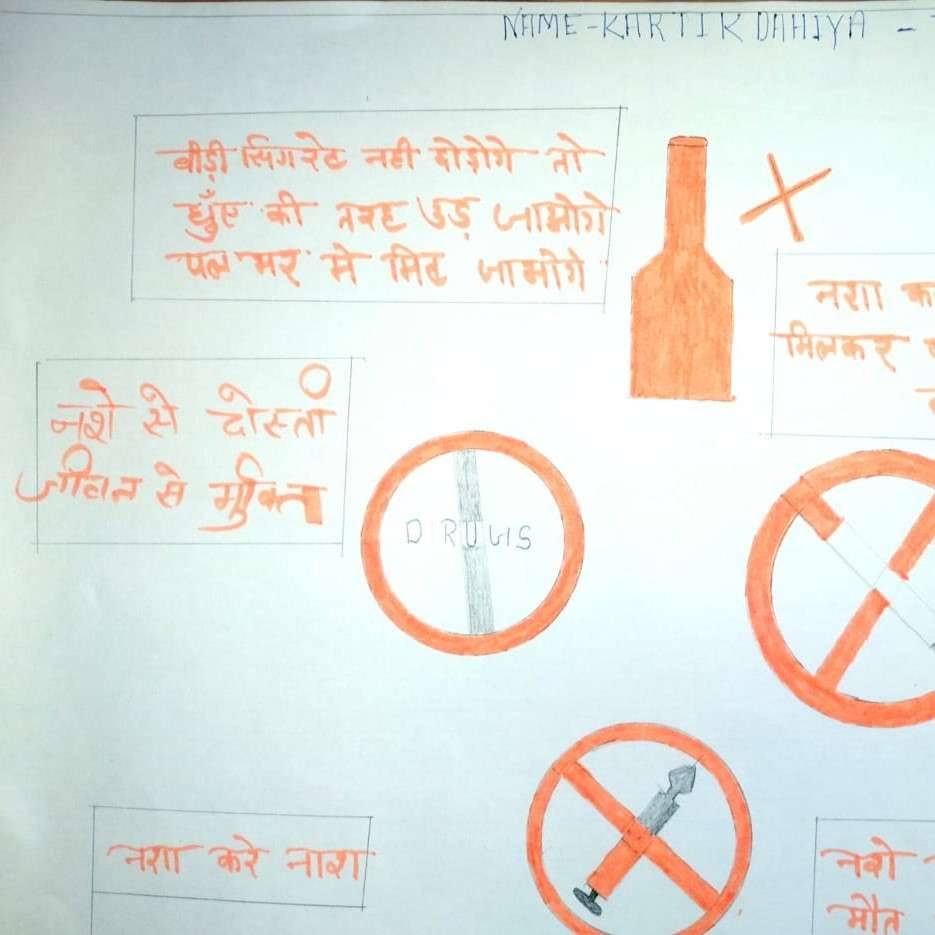 NAME-KARTIK DAHIYA -
बीड़ी सिगरेट नही दोड़ोगे तो
धुँए की तरह उड़ जाओगे
पल भर मे मिट जाओगे
नशा
मिलकर
नशे से दोस्ती
जीवन से मुक्ति
DRUGS
नशा करे नाश
नशे
मौत